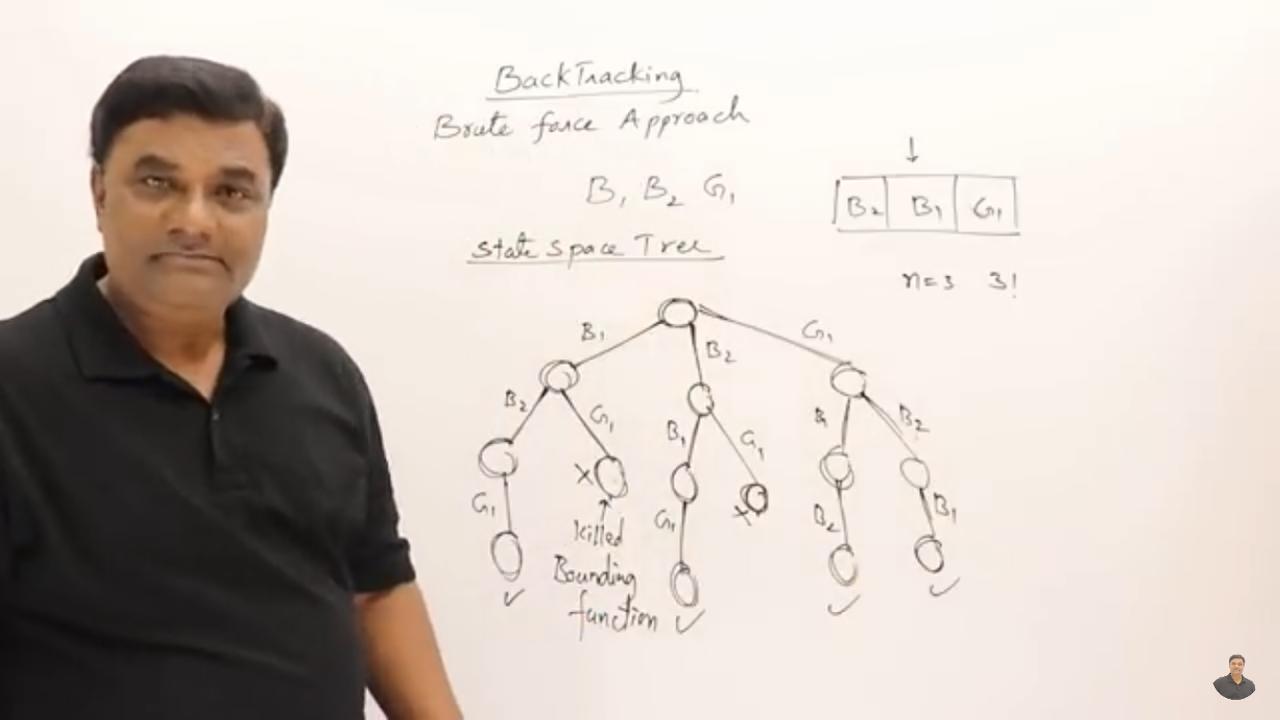 BackTracking
Brute force Approach
B₁ B₂ G₁
B₂ B₁ G₁
n=3 3!
State Space Tree
B₁ B₂ G₁
B₂ G₁ B₁ G₁ B₁ B₂
G₁ G₁ B₂ B₁
killed
Bounding
function